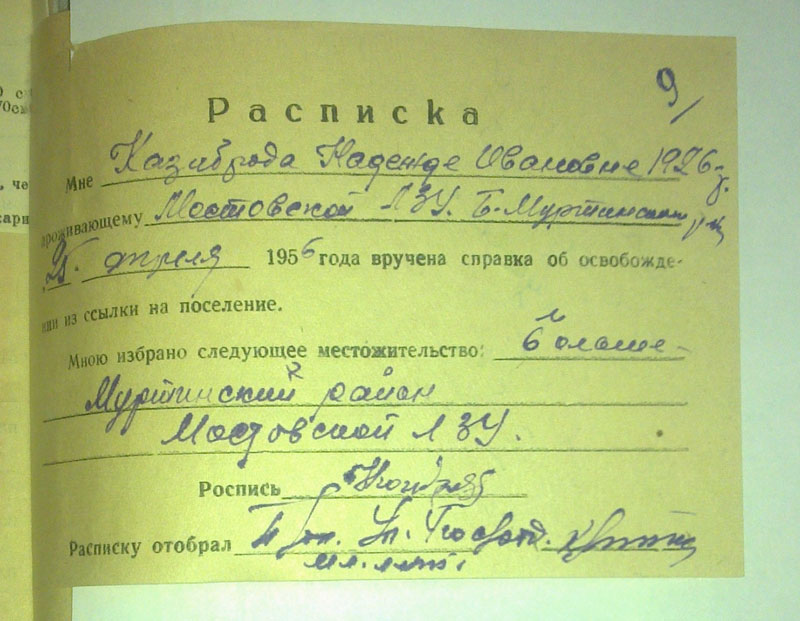 9/
Расписка
Мне Казиброда Надежде Ивановне 1926 г.
проживающему Мостовской ЛЗУ. Б-Муртинский р-н
25. апреля 1956 года вручена справка об освобожде-
нии из ссылки на поселение.
Мною избрано следующее местожительство: Больше-
Муртинский район
Мостовской ЛЗУ.
Роспись
Расписку отобрал